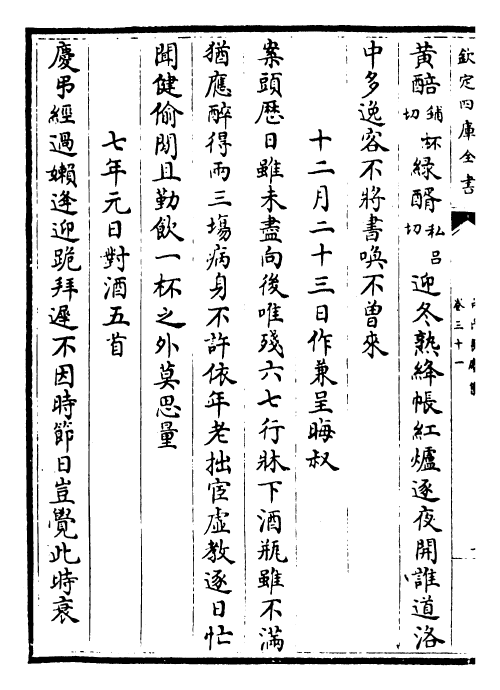 欽定四庫全書
卷三十一
黄醅鋪坏切緑醑私呂切迎冬熟絳帳紅爐逐夜開誰道洛
中多逸客不將書喚不曽來
十二月二十三日作兼呈晦叔
案頭厯日雖未盡向後唯殘六七行牀下酒瓶雖不滿
猶應醉得兩三塲病身不許依年老拙宦虚教逐日忙
聞健偷閒且勤飲一杯之外莫思量
七年元日對酒五首
慶弔經過嬾逢迎跪拜遲不因時節日豈覺此時衰